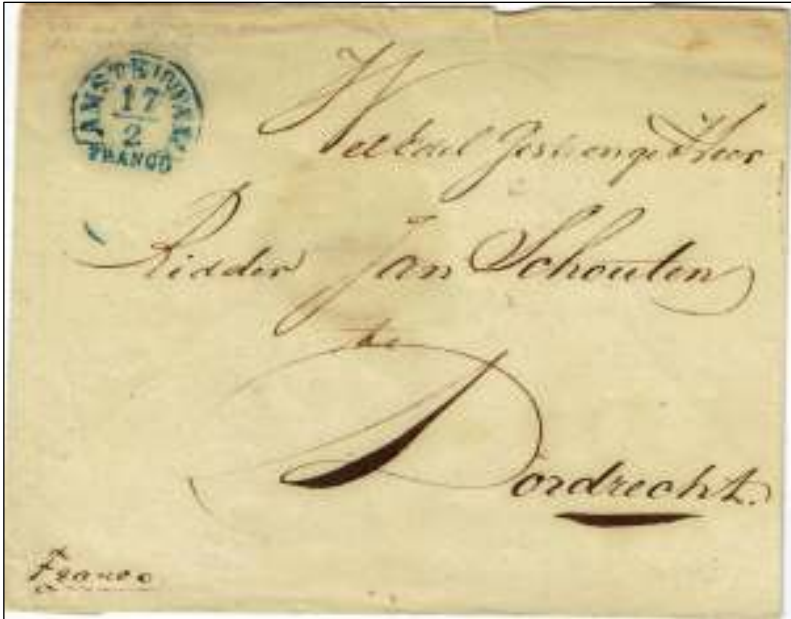 AMSTERDAM
17
2
FRANCO
WelEdel Gestrenge Heer
Ridder Jan Schouten
te
Dordrecht.
Franco